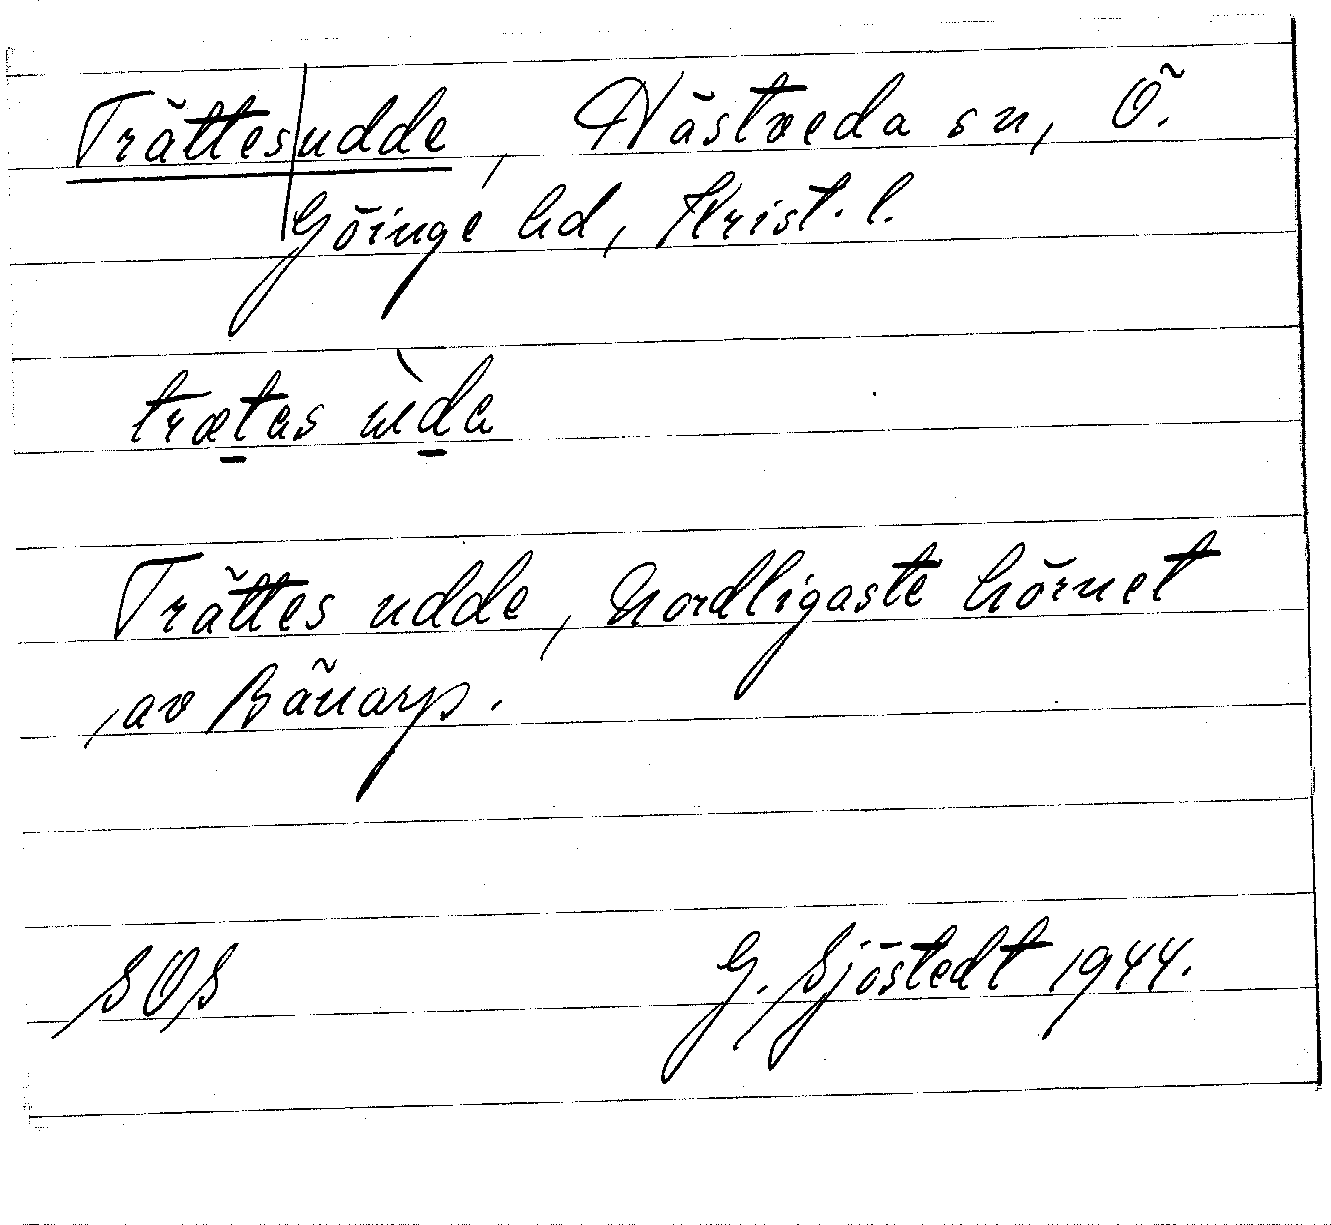 Trättes|udde, Nästveda sn, Ö.
Göinge hd, Krist. l.
trætas ùda
Trättes udde, nordligaste hörnet
av Bänarp.
SOS G. Sjöstedt 1944.